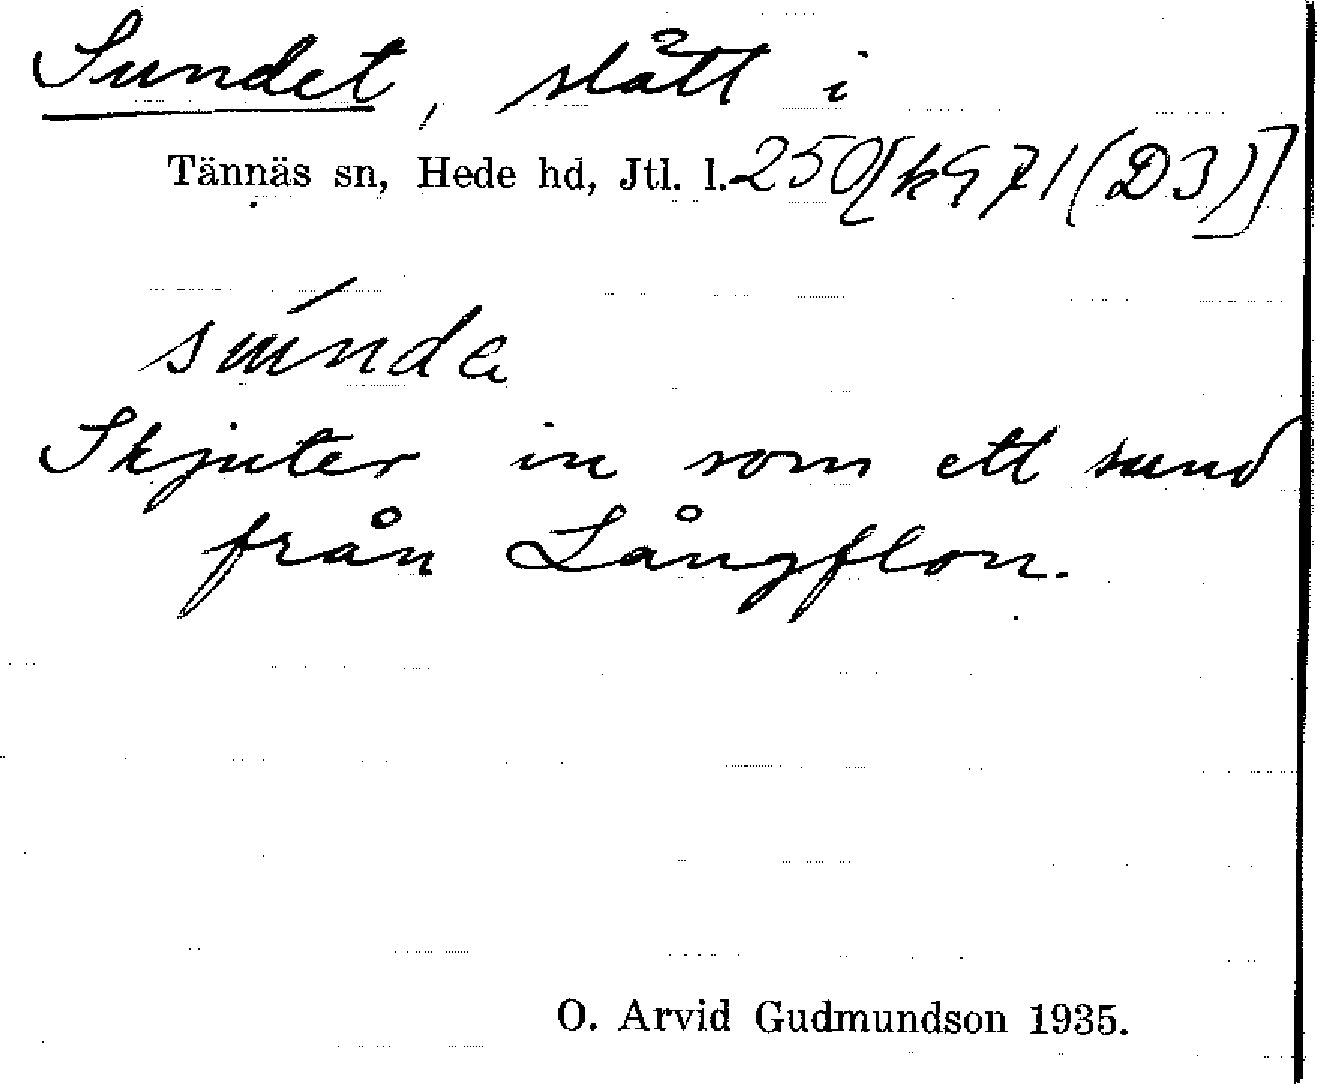 Sundet, slått i
Tännäs sn, Hede hd, Jtl. l. 250[k971(D3)]
Skjuter in som ett sund
från Långflon.
O. Arvid Gudmundson 1935.